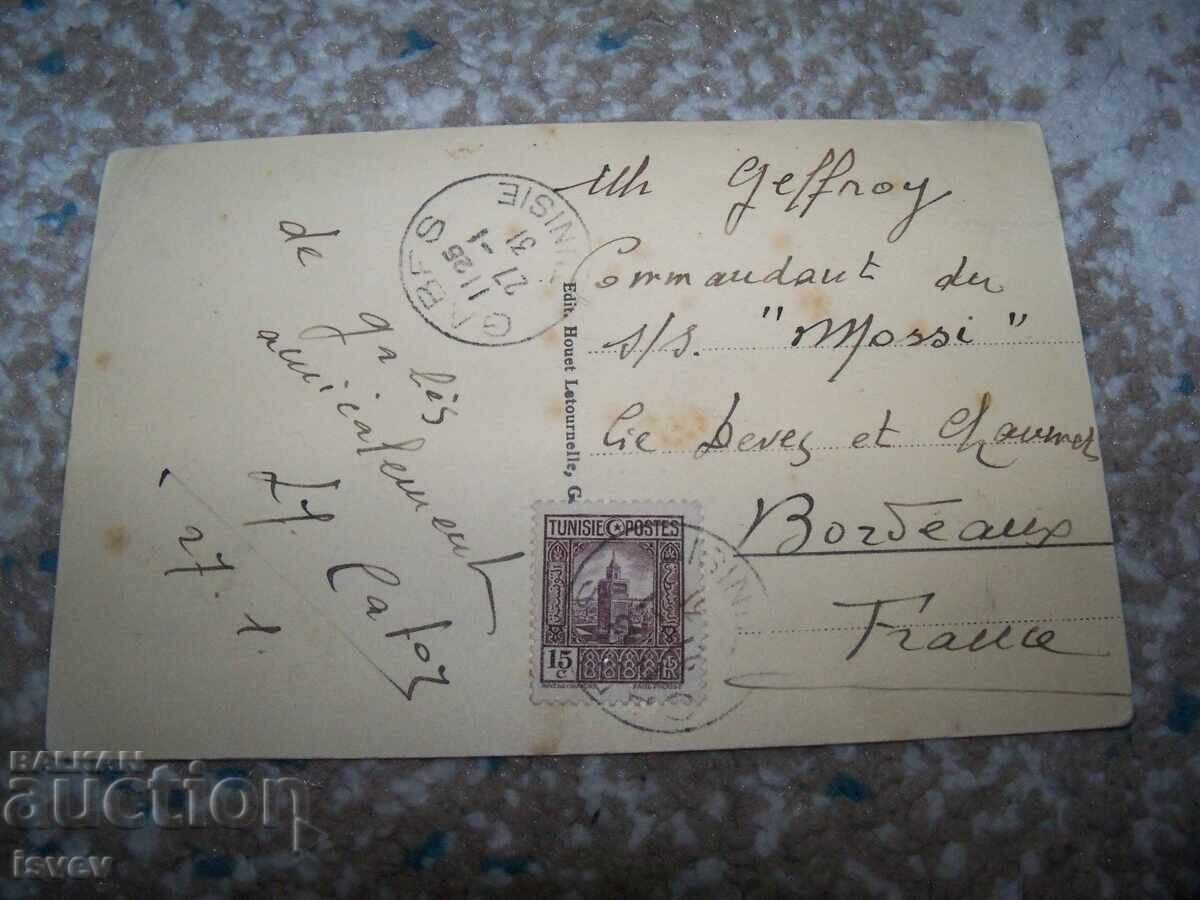 de
Gabès
amicalement
27.1
GABES
11 25
27 -1
31
TUNISIE
Edit. Houet Letournelle, G
Mr Geffroy
Commandant du
s/s. "Mossi"
Cie Devès et Chaumet
Bordeaux
France
TUNISIE POSTES
15 c
BALKAN
auction
isvev